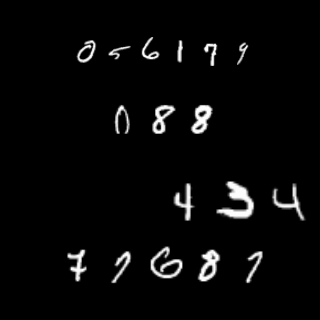 056179
088
434
77687